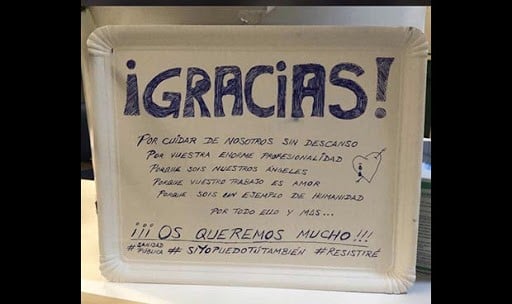 ¡GRACIAS!
POR CUIDAR DE NOSOTROS SIN DESCANSO
POR VUESTRA ENORME PROFESIONALIDAD
PORQUE SOIS NUESTROS ÁNGELES
PORQUE VUESTRO TRABAJO ES AMOR
PORQUE SOIS UN EJEMPLO DE HUMANIDAD
POR TODO ELLO Y MAS...
¡¡¡OS QUEREMOS MUCHO!!!
#SANIDAD PÚBLICA #SIYOPUEDOTÚTAMBIÉN #RESISTIRÉ